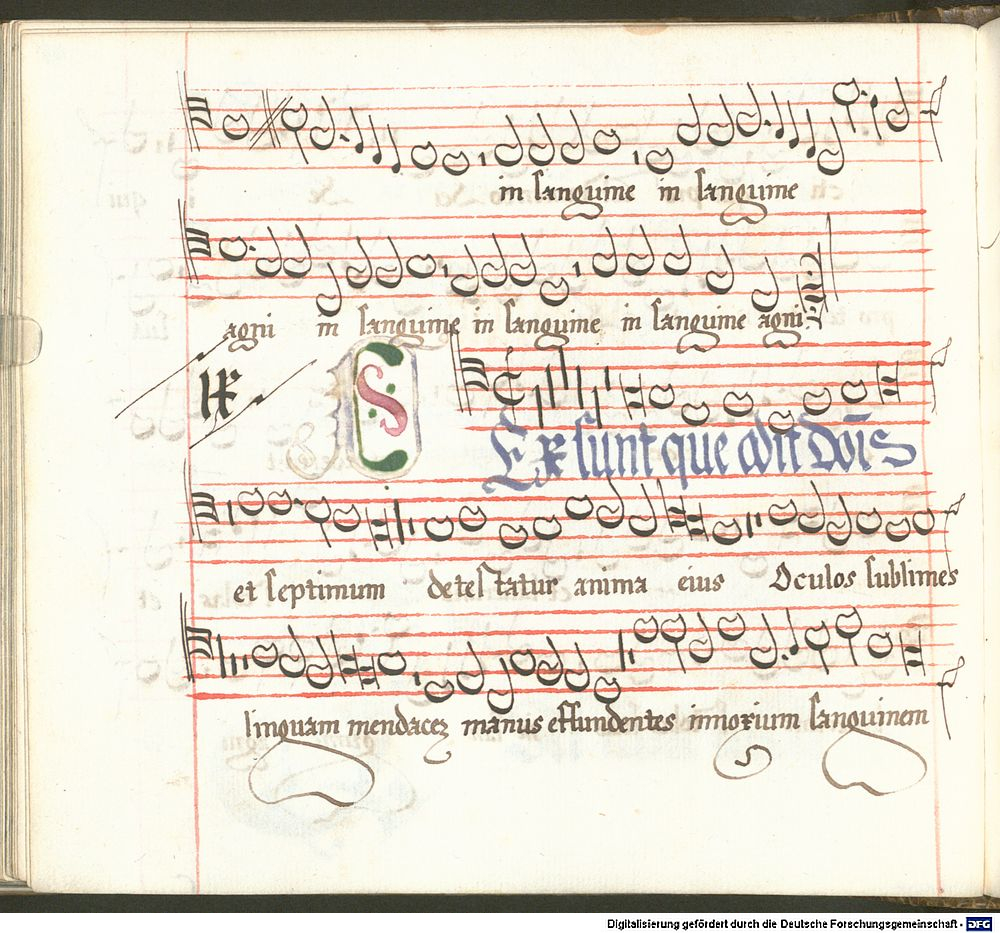 in sanguine in sanguine
agni in sanguine in sanguine in sanguine agni
lx
S Ex sunt que odit dn̄s
et septimum detestatur anima eius Oculos sublimes
linguam mendacez manus effundentes innoxium sanguinem
Digitalisierung gefördert durch die Deutsche Forschungsgemeinschaft - DFG